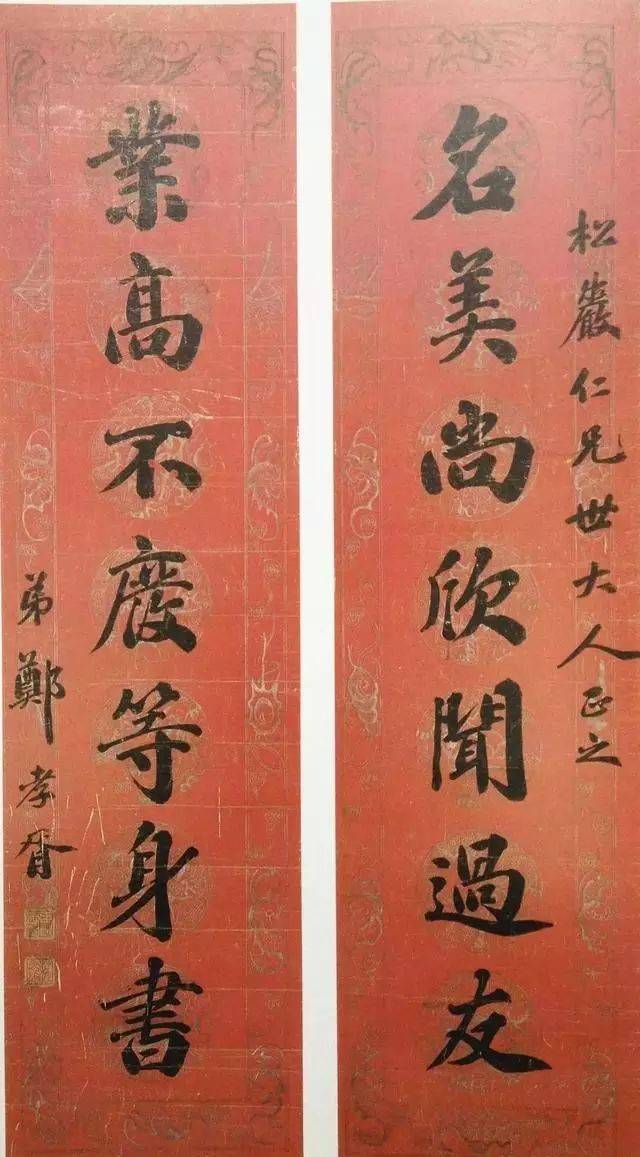 松巖仁兄世大人正之
名美尚欣聞過友
業高不廢等身書
弟鄭孝胥